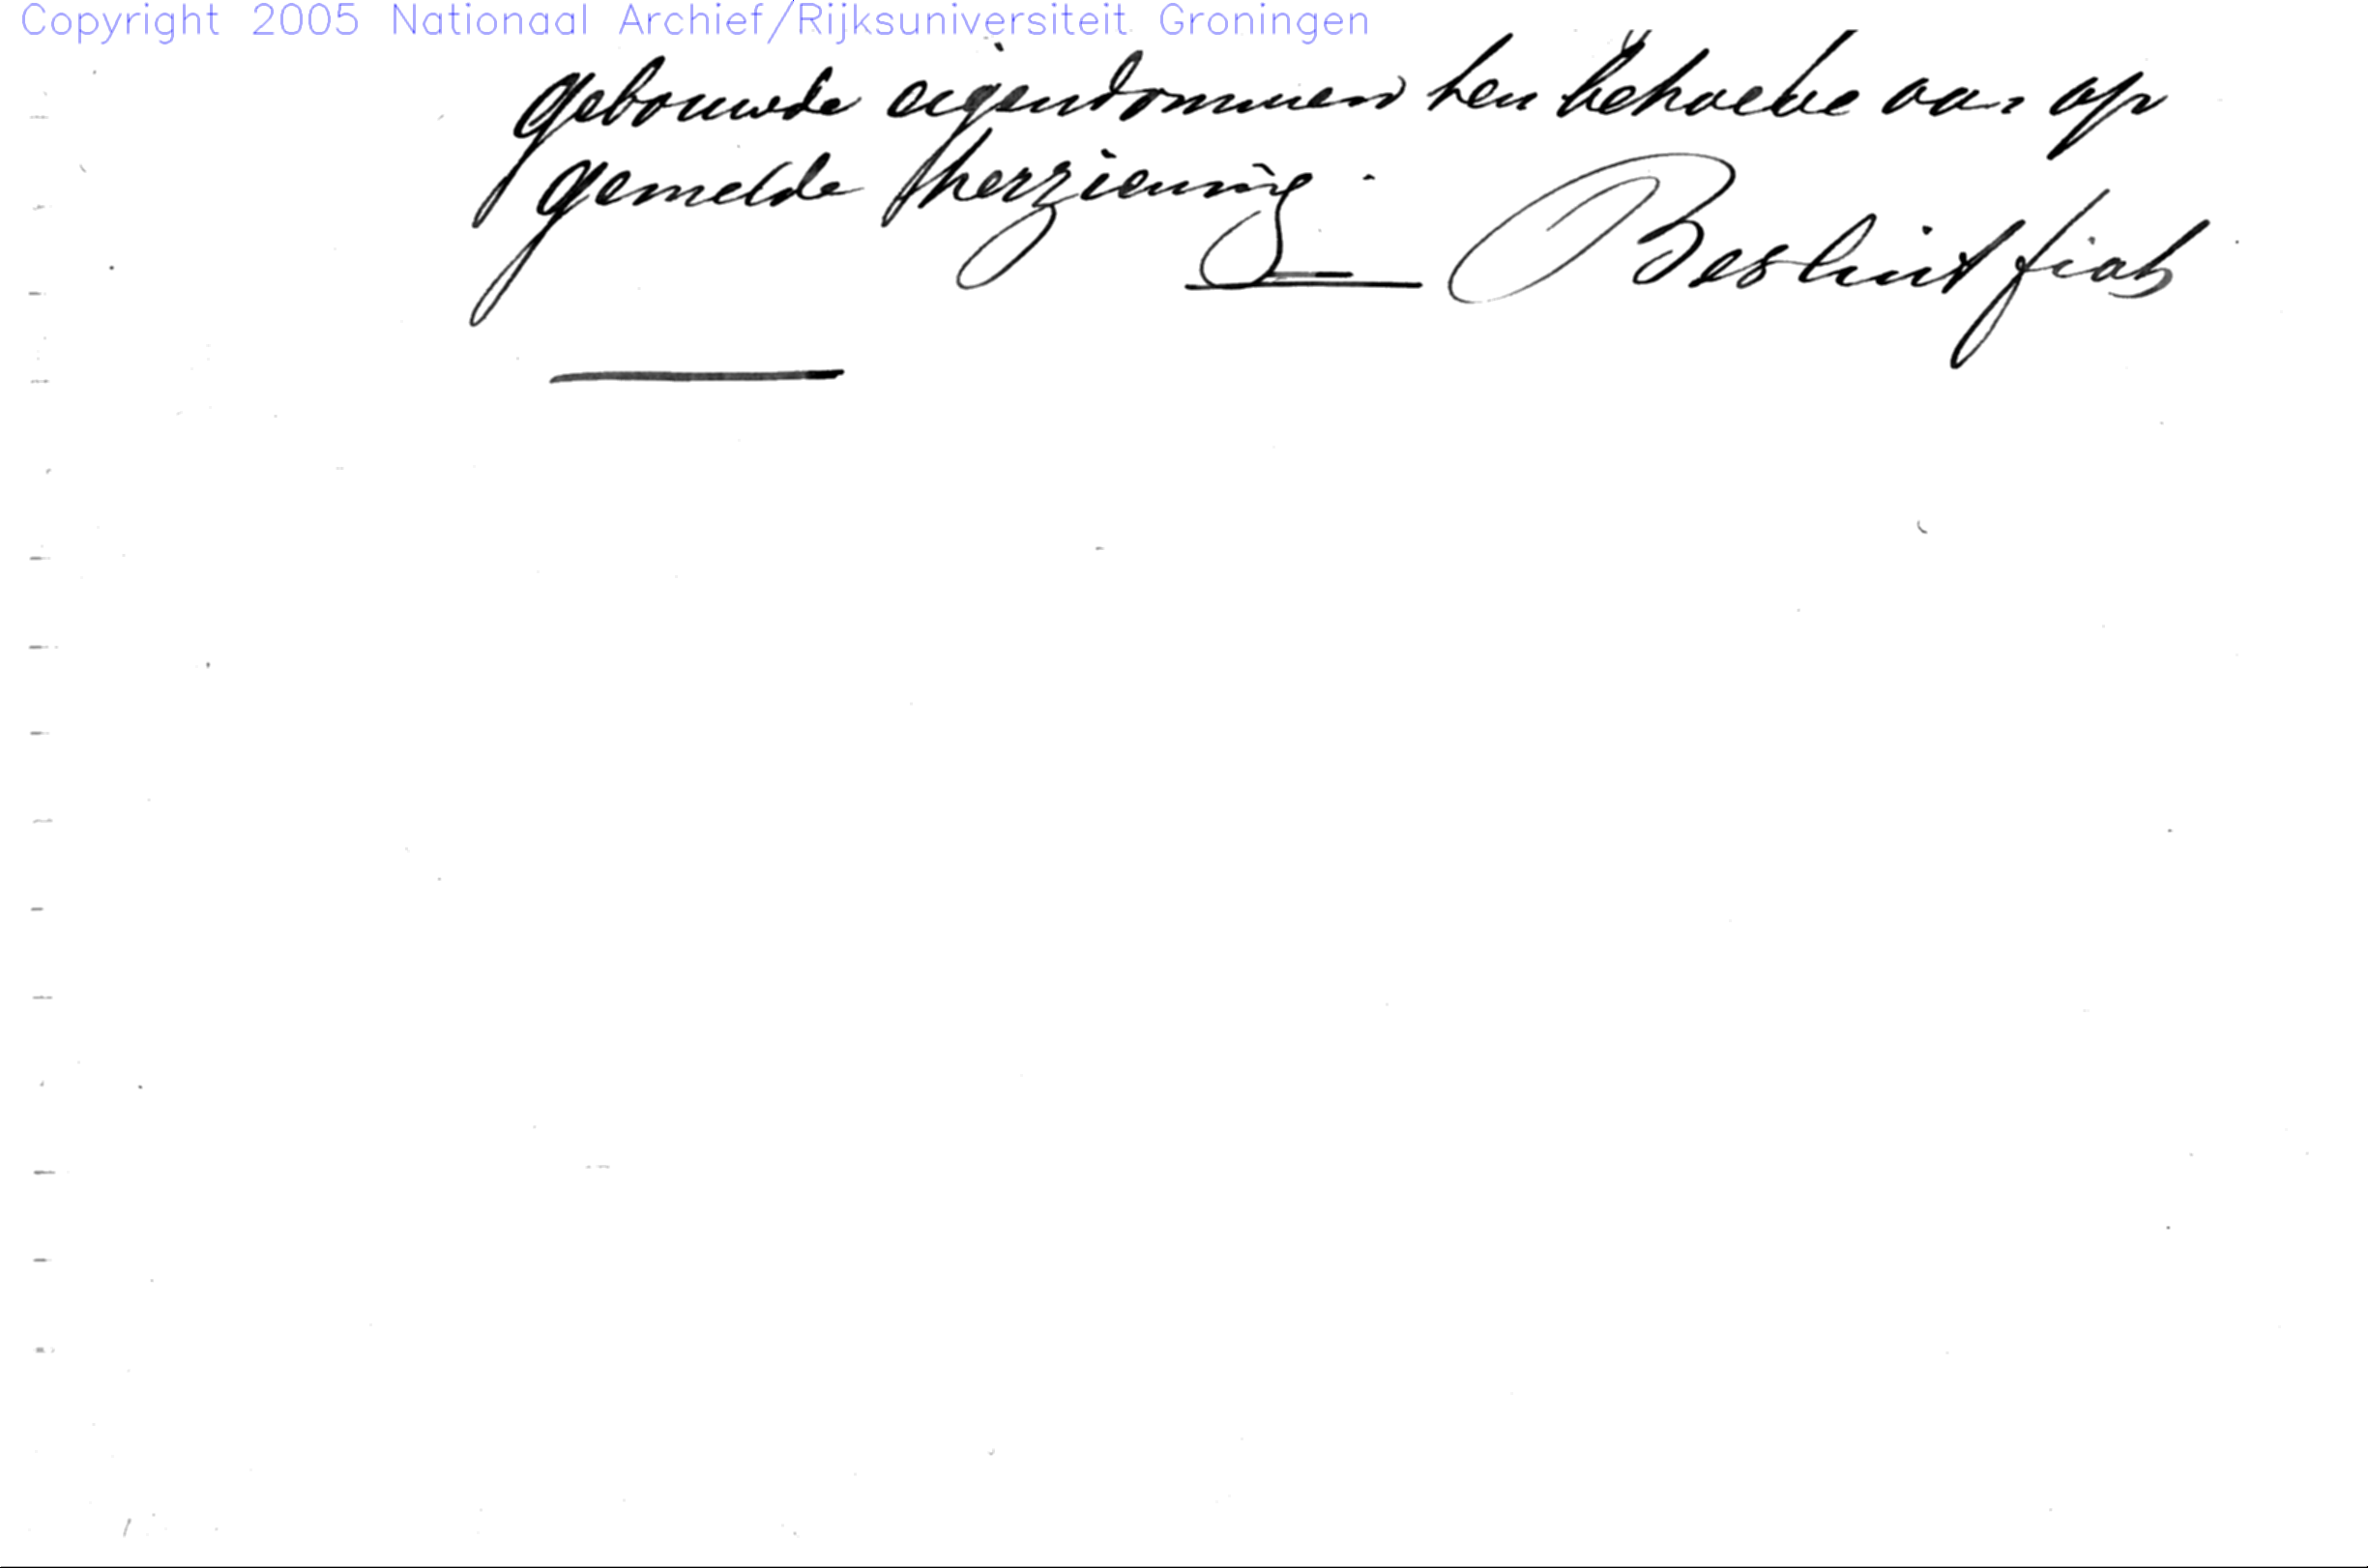 Copyright 2005 Nationaal Archief/Rijksuniversiteit Groningen
gebouwde eigendommen ten behoeve van op
gemelde herziening.
Besluit fiat